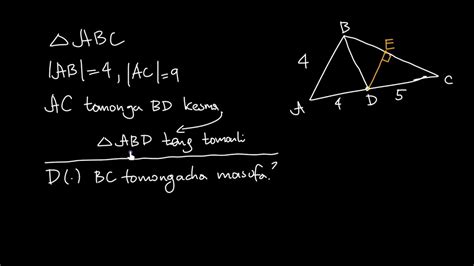 △ABC
|AB|=4, |AC|=9
AC tomonga BD kesma
△ABD teng tomonli
D(.) BC tomongacha masofa?
B
E
4
A
4
D
5
C